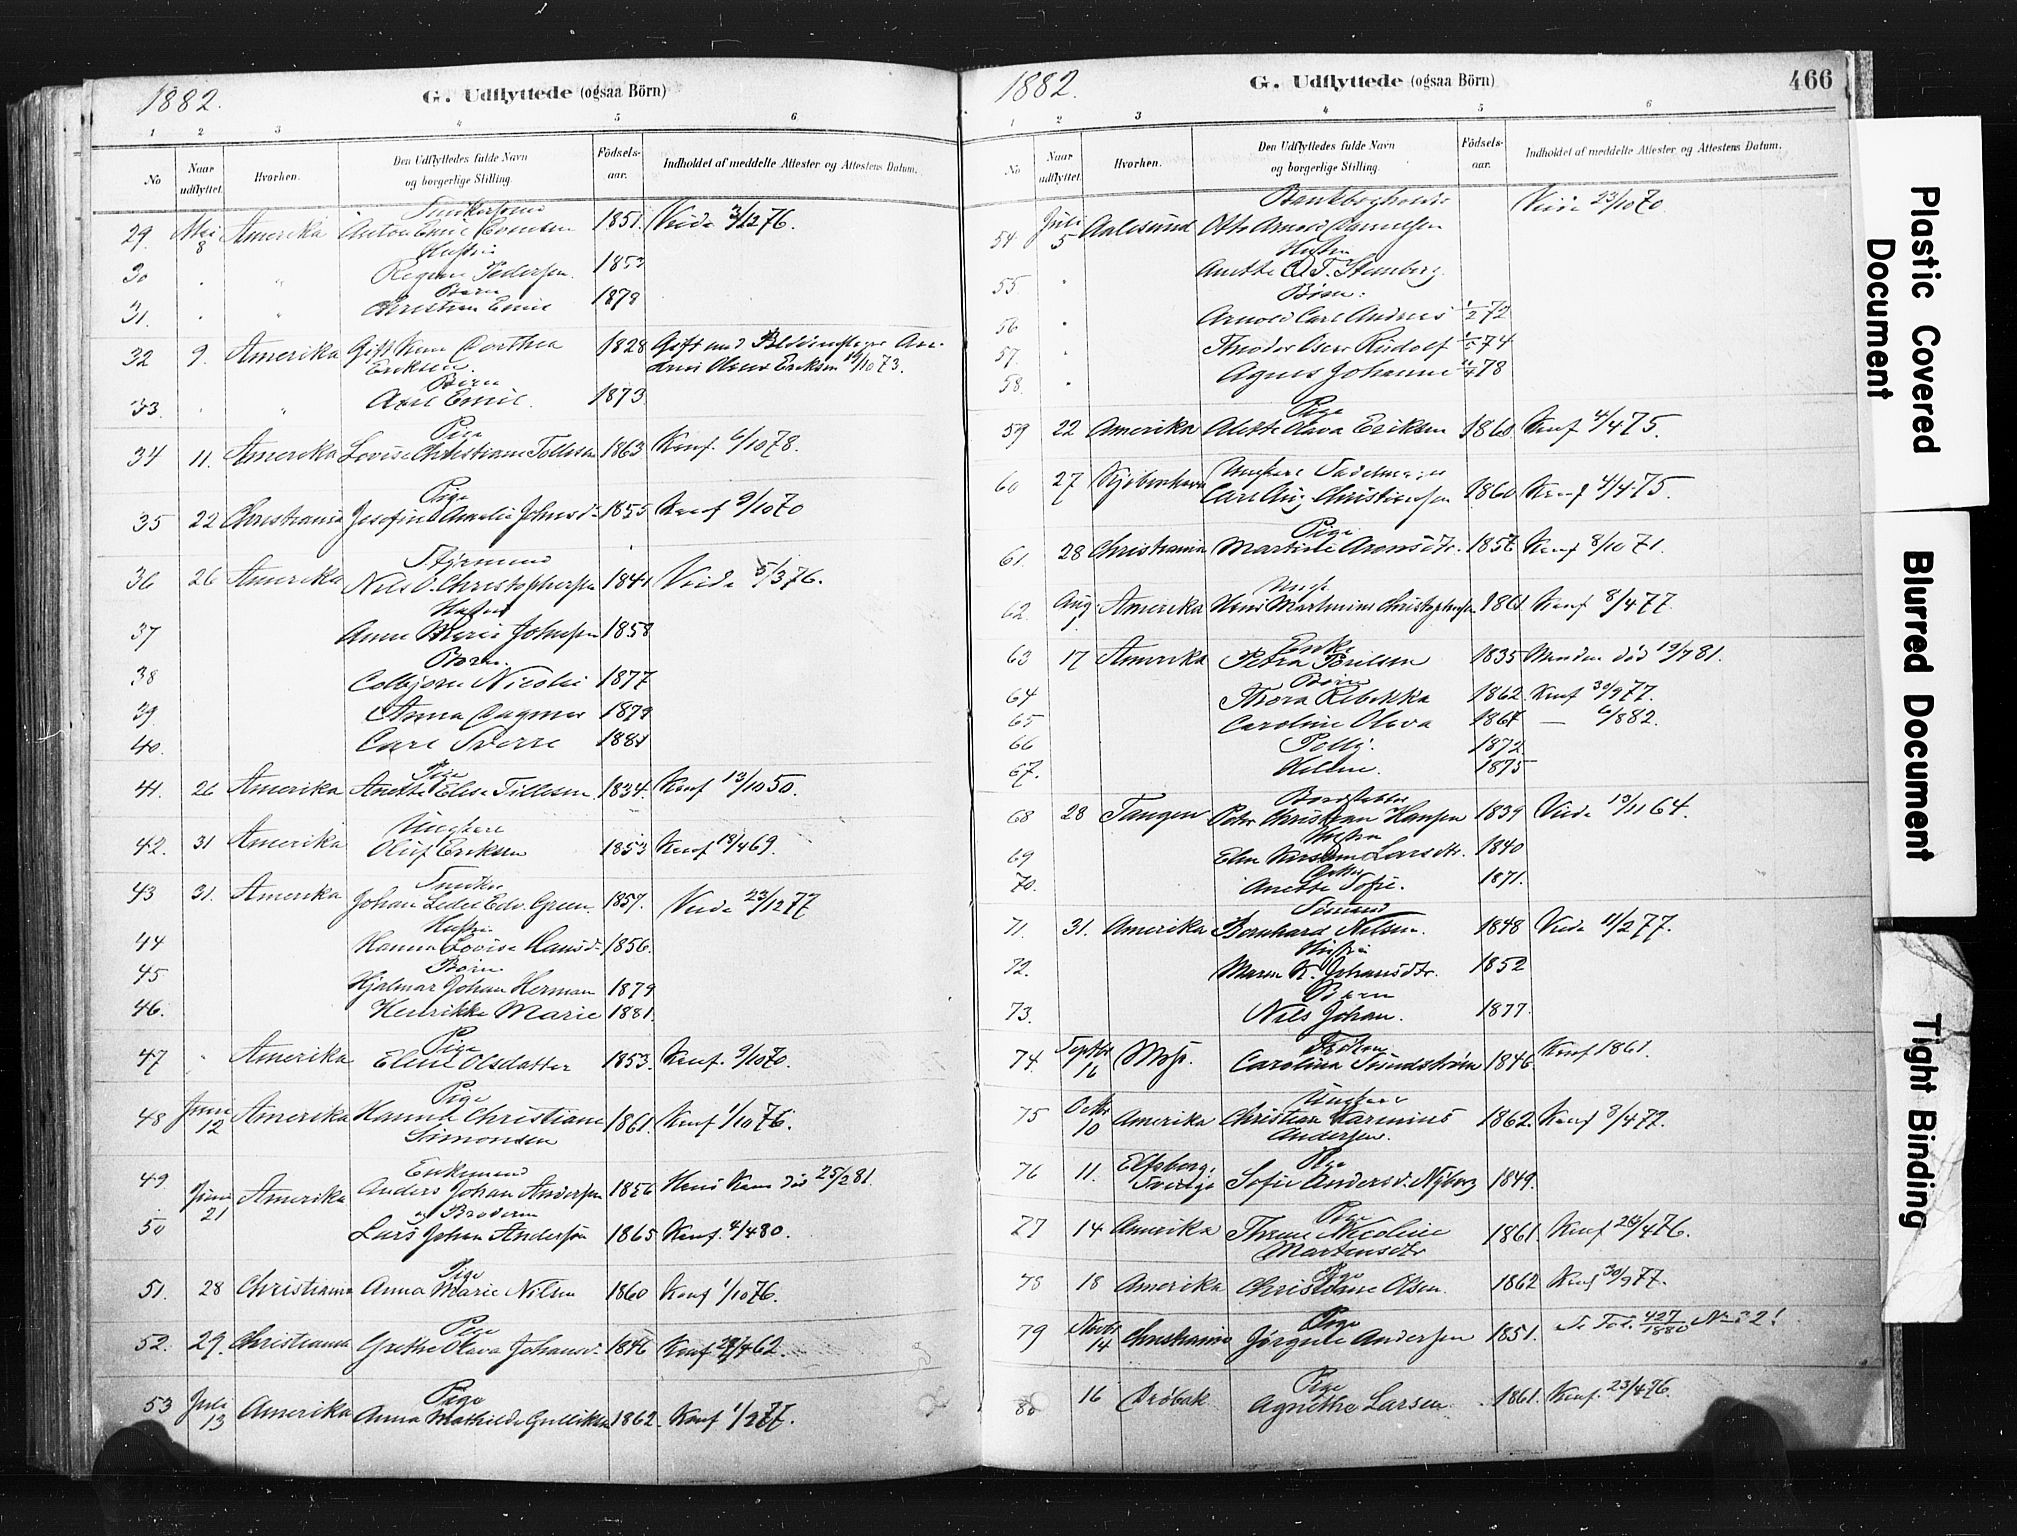 1882.
G. Udflyttede (ogsaa Börn)
1 2 3 4 5 6
No
Naar udflyttet.
Hvorhen.
Den Udflyttedes fulde Navn og borgerlige Stilling.
Födsels-aar.
Indholdet af meddelte Attester og Attestens Datum.
29. Mai 8 Amerika Anton Emil 1851. Viede 3/12 76.
Hustru
30 Regine Pedersen. 1853
Børn
31. Christian Emil 1878
32 9. Amerika Gift Kone Dorthea Eriksen. 1828 Gift med Eriksen 19/10 73.
Børn
33. Axel Emil. 1873
Pige
34 11. Amerika Lovise Christiane 1863 Konf. 6/10 78.
Pige
35 22 Christiania Josefine Amalie Johnsd. 1855 Konf 9/10 70
Styrmand
36 26 Amerika Nils O. Christophersen 1841 Viede 5/3 76.
Hustru
37 Anne Marie Johnsen 1858
Børn.
38 Colbjørn Nicolai 1877
39 Anna Dagmar 1879
40. Carl Sverre 1881
Pige
41. 26 Amerika Anette Elise Tillesen. 1834. Konf 13/10 50.
Ungkarl
42. 31 Amerika Oluf Eriksen 1853 Konf 18/4 69.
43 31. Amerika Johan Edv. Green. 1857. Viede 23/12 77
Hustru
44 Hanna Lovise Hansd. 1856.
Børn
45 Hjalmar Johan Herman 1879
46. Henrikke Marie 1881.
Pige
47 " Amerika Eline Olsdatter 1853. Konf. 9/10 70.
Pige
48 Juni 12 Amerika Hanna Christiane Simonsen 1861. Konf 1/10 76.
Enkemand
49 Juni 21 Amerika Anders Johan Andersen 1856 Hans Kone død 25/2 81.
og Broderen
50 Lars Johan Andersen 1865 Konf. 4/4 80.
Pige
51. 28 Christiania Anna Marie Nilsen 1860 Konf 1/10 76.
Pige
52. 29. Christiania Grethe Olava Johansd. 1846 Konf 4 62.
Pige
53 Juli 13 Amerika Anna Mathilde Gulliksen 1862. Konf 77.
1882.
G. Udflyttede (ogsaa Börn)
466
1 2 3 4 5 6
No
Naar udflyttet.
Hvorhen.
Den Udflyttedes fulde Navn og borgerlige Stilling.
Födsels-aar.
Indholdet af meddelte Attester og Attestens Datum.
Bankbogholder Viede 23/10 70
54. Juli 5 Aalesund Otto Arnold Danielsen
Hustru
55. Anette Stenberg.
Børn:
56 Arnold Carl Andreas 72
57. Theodor Oscar Rudolf 74
58. Agnes Johanne 78
Pige
59 22 Amerika Alette Olava Eriksen 1860 Konf 4/4 75.
60 27 Kjøbenhavn Carl Aug. Christiansen 1860 Konf 4/4 75.
Pige
61. 28 Christiania Aronsdtr. 1856 Konf 8/10 71.
62. Aug Amerika Hans Martinius Christophersen 1861 Konf 8/4 77.
Enke
63 17 Amerika Petra 1835 Manden død 19/7 81.
Børn
64 Thora Rebekka 1862 Konf 30/9 77.
65 Caroline Olava 1867 — 6/8 82.
66 Polly. 1872.
67. 1875
68 28 Tangen Peter Christian Hansen 1839 Viede 13/11 64.
Hustru
69 Larsdtr. 1840
Datter
70. Anette Sofie. 1871.
Sømand
71. 31. Amerika Bernhard Nilsen. 1848 Viede 11/2 77.
Hustru
72. Maren K. Johansdtr. 1852
Børn
73. Nils Johan. 1877.
Frøken
74. Septbr 16 Moss. Carolina Sundstrøm 1846 Konf 1861.
Ungkarl
75 Octbr 10 Amerika Christian Andersen. 1862. Konf 8/4 77.
Pige
76 11. Elfsborg. Sverige Sofie Andersd. Nyberg 1849.
Pige
77 14 Amerika Nicoline Martinsdtr 1861. Konf 23/4 76.
Pige
78 18 Amerika Christiane Olsen. 1862 Konf 30/9 77.
Pige
79 Novbr 14 Christiania Jørgine Andersen 1851. 427/1880
Pige
80 16 Drøbak Agnethe Larsen 1861. Konf. 23/4 76.
Plastic Covered Document
Blurred Document
Tight Binding